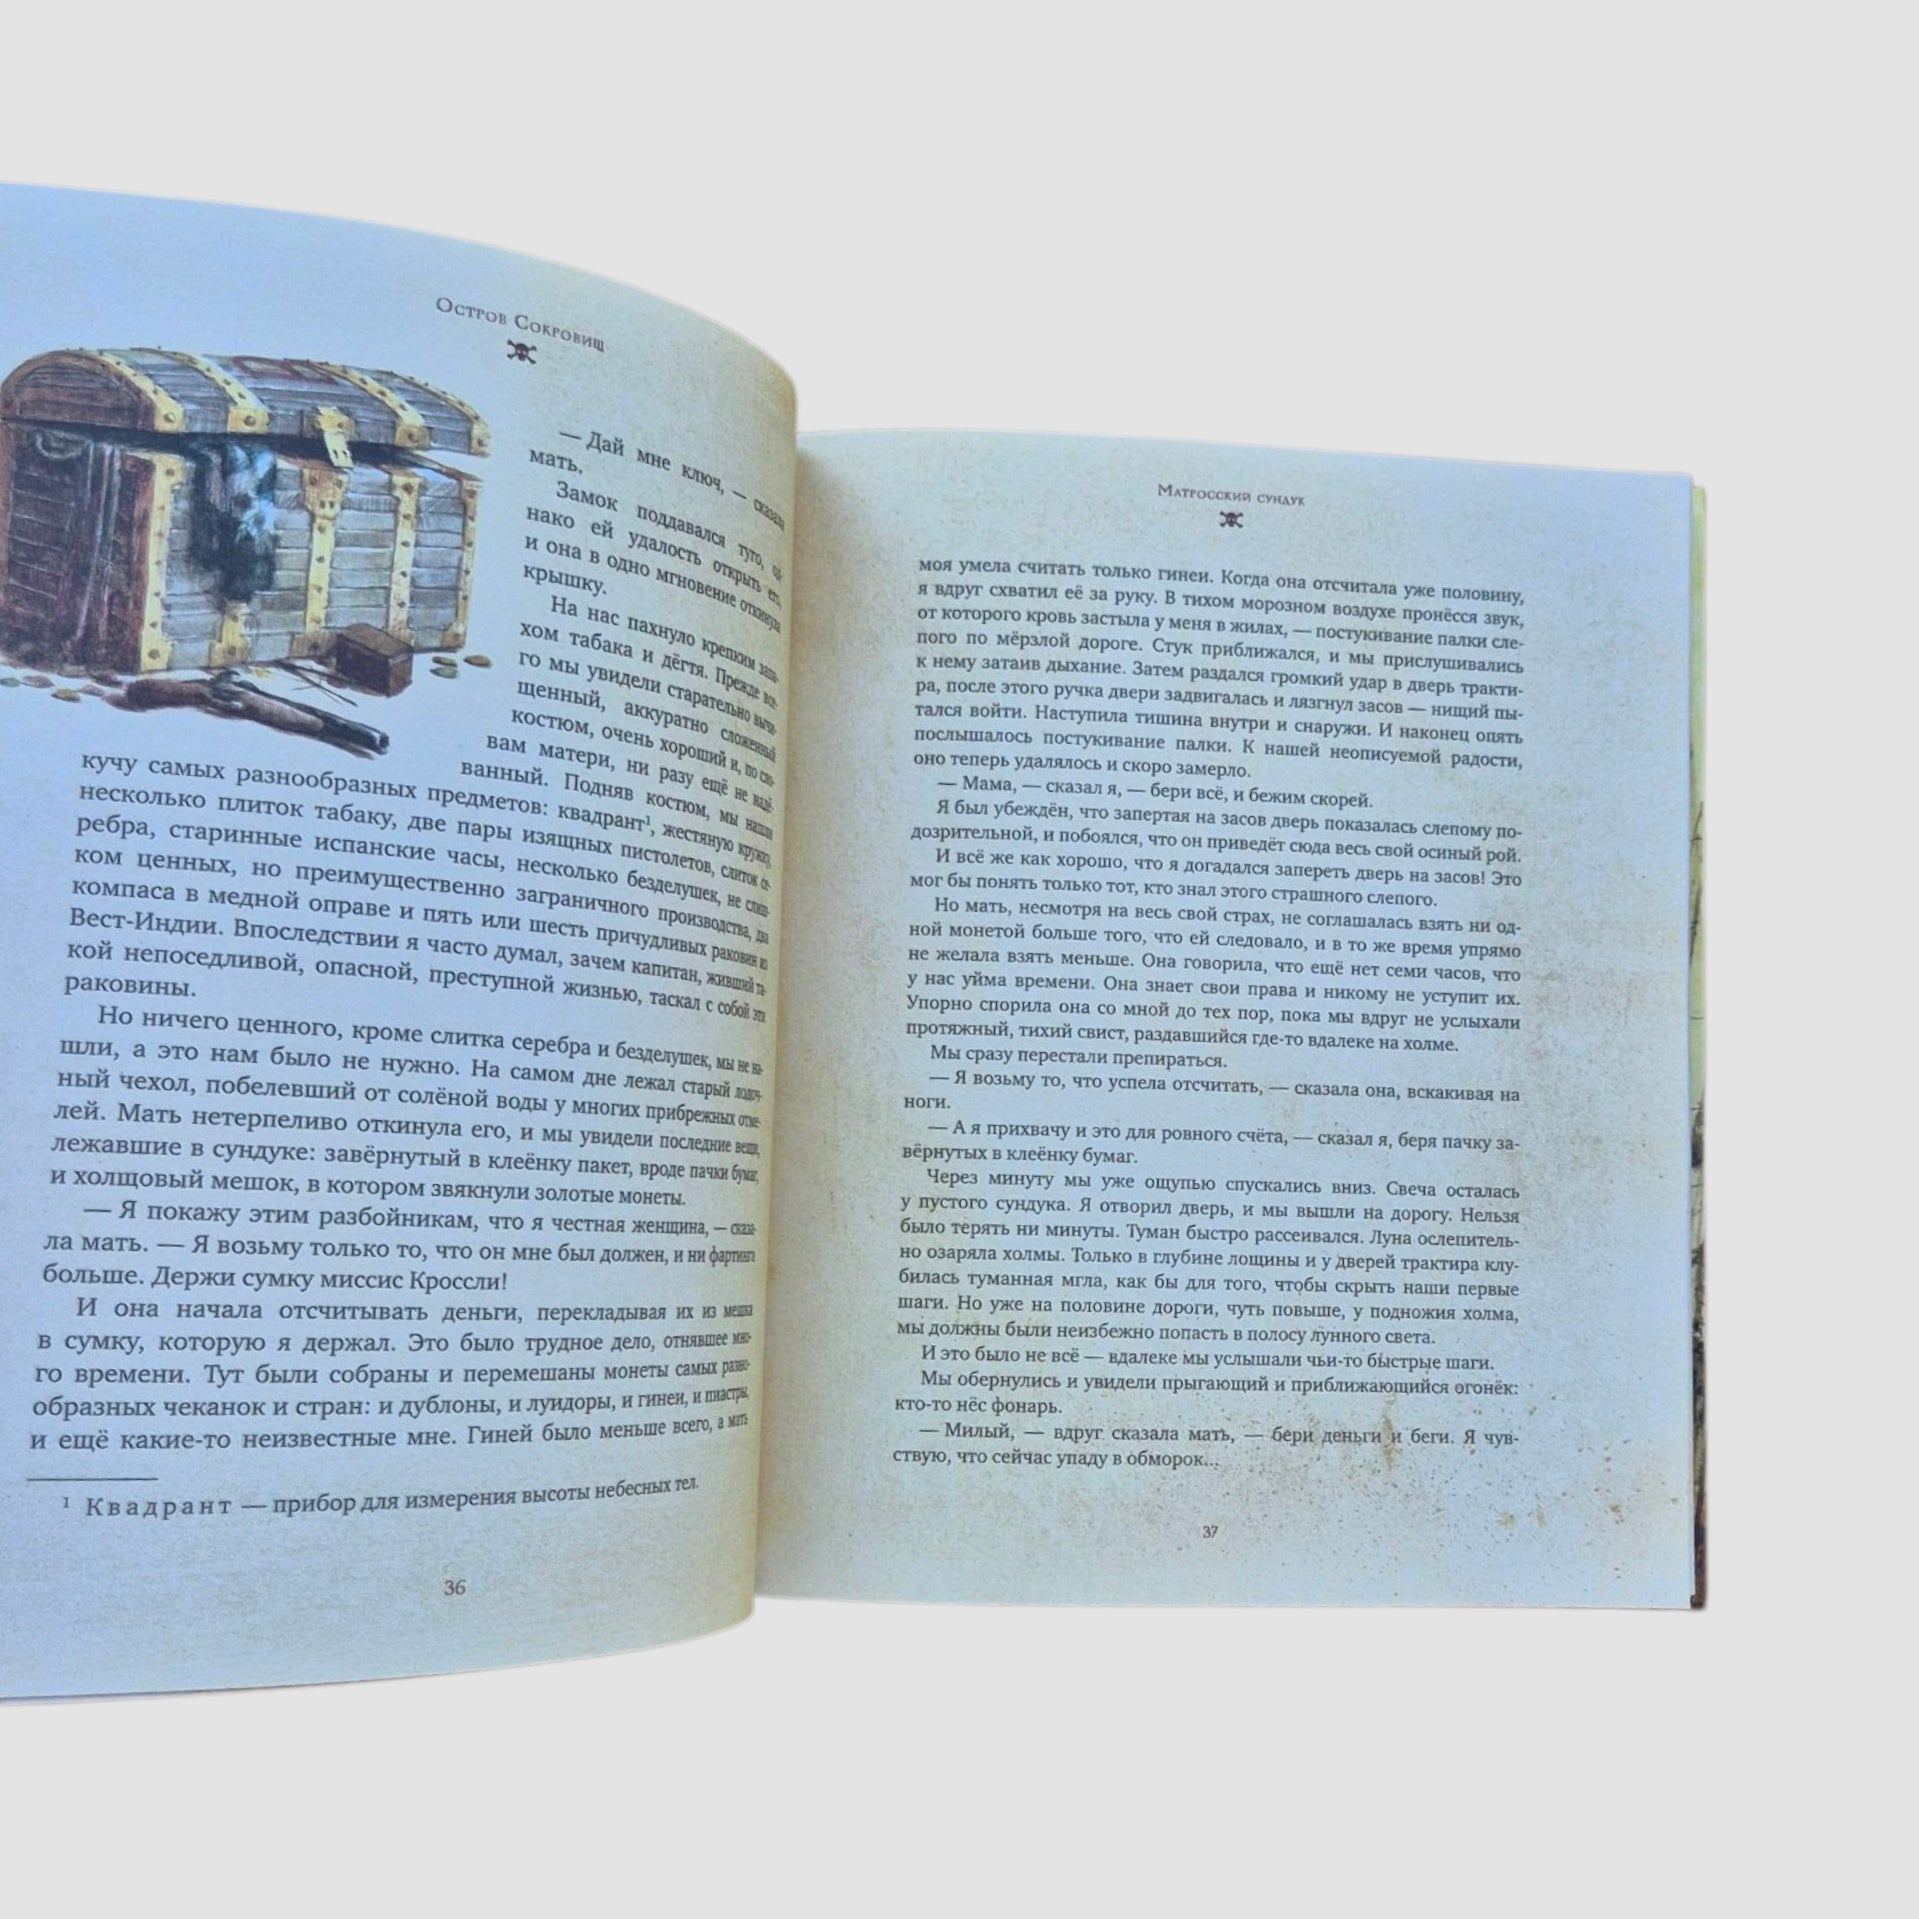 Остров Сокровищ
— Дай мне ключ, — сказала
мать.
Замок поддавался туго, од-
нако ей удалость открыть его,
и она в одно мгновение откинула
крышку.
На нас пахнуло крепким запа-
хом табака и дёгтя. Прежде все-
го мы увидели старательно вычи-
щенный, аккуратно сложенный
костюм, очень хороший и, по сло-
вам матери, ни разу ещё не надё-
ванный. Подняв костюм, мы нашли
кучу самых разнообразных предметов: квадрант¹, жестяную кружку,
несколько плиток табаку, две пары изящных пистолетов, слиток се-
ребра, старинные испанские часы, несколько безделушек, не слиш-
ком ценных, но преимущественно заграничного производства, два
компаса в медной оправе и пять или шесть причудливых раковин из
Вест-Индии. Впоследствии я часто думал, зачем капитан, живший та-
кой непоседливой, опасной, преступной жизнью, таскал с собой эти
раковины.
Но ничего ценного, кроме слитка серебра и безделушек, мы не на-
шли, а это нам было не нужно. На самом дне лежал старый лодоч-
ный чехол, побелевший от солёной воды у многих прибрежных отме-
лей. Мать нетерпеливо откинула его, и мы увидели последние вещи,
лежавшие в сундуке: завёрнутый в клеёнку пакет, вроде пачки бумаг,
и холщовый мешок, в котором звякнули золотые монеты.
— Я покажу этим разбойникам, что я честная женщина, — сказа-
ла мать. — Я возьму только то, что он мне был должен, и ни фартинга
больше. Держи сумку миссис Кроссли!
И она начала отсчитывать деньги, перекладывая их из мешка
в сумку, которую я держал. Это было трудное дело, отнявшее мно-
го времени. Тут были собраны и перемешаны монеты самых разно-
образных чеканок и стран: и дублоны, и луидоры, и гинеи, и пиастры,
и ещё какие-то неизвестные мне. Гиней было меньше всего, а мать
¹ Квадрант — прибор для измерения высоты небесных тел.
36
Матросский сундук
моя умела считать только гинеи. Когда она отсчитала уже половину,
я вдруг схватил её за руку. В тихом морозном воздухе пронёсся звук,
от которого кровь застыла у меня в жилах, — постукивание палки сле-
пого по мёрзлой дороге. Стук приближался, и мы прислушивались
к нему затаив дыхание. Затем раздался громкий удар в дверь тракти-
ра, после этого ручка двери задвигалась и лязгнул засов — нищий пы-
тался войти. Наступила тишина внутри и снаружи. И наконец опять
послышалось постукивание палки. К нашей неописуемой радости,
оно теперь удалялось и скоро замерло.
— Мама, — сказал я, — бери всё, и бежим скорей.
Я был убеждён, что запертая на засов дверь показалась слепому по-
дозрительной, и побоялся, что он приведёт сюда весь свой осиный рой.
И всё же как хорошо, что я догадался запереть дверь на засов! Это
мог бы понять только тот, кто знал этого страшного слепого.
Но мать, несмотря на весь свой страх, не соглашалась взять ни од-
ной монетой больше того, что ей следовало, и в то же время упрямо
не желала взять меньше. Она говорила, что ещё нет семи часов, что
у нас уйма времени. Она знает свои права и никому не уступит их.
Упорно спорила она со мной до тех пор, пока мы вдруг не услыхали
протяжный, тихий свист, раздавшийся где-то вдалеке на холме.
Мы сразу перестали препираться.
— Я возьму то, что успела отсчитать, — сказала она, вскакивая на
ноги.
— А я прихвачу и это для ровного счёта, — сказал я, беря пачку за-
вёрнутых в клеёнку бумаг.
Через минуту мы уже ощупью спускались вниз. Свеча осталась
у пустого сундука. Я отворил дверь, и мы вышли на дорогу. Нельзя
было терять ни минуты. Туман быстро рассеивался. Луна ослепитель-
но озаряла холмы. Только в глубине лощины и у дверей трактира клу-
билась туманная мгла, как бы для того, чтобы скрыть наши первые
шаги. Но уже на половине дороги, чуть повыше, у подножия холма,
мы должны были неизбежно попасть в полосу лунного света.
И это было не всё — вдалеке мы услышали чьи-то быстрые шаги.
Мы обернулись и увидели прыгающий и приближающийся огонёк:
кто-то нёс фонарь.
— Милый, — вдруг сказала мать, — бери деньги и беги. Я чув-
ствую, что сейчас упаду в обморок...
37